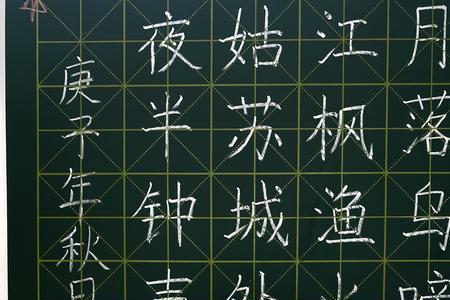 月落鸟啼
江枫渔火
姑苏城外
夜半钟声
庚子年秋